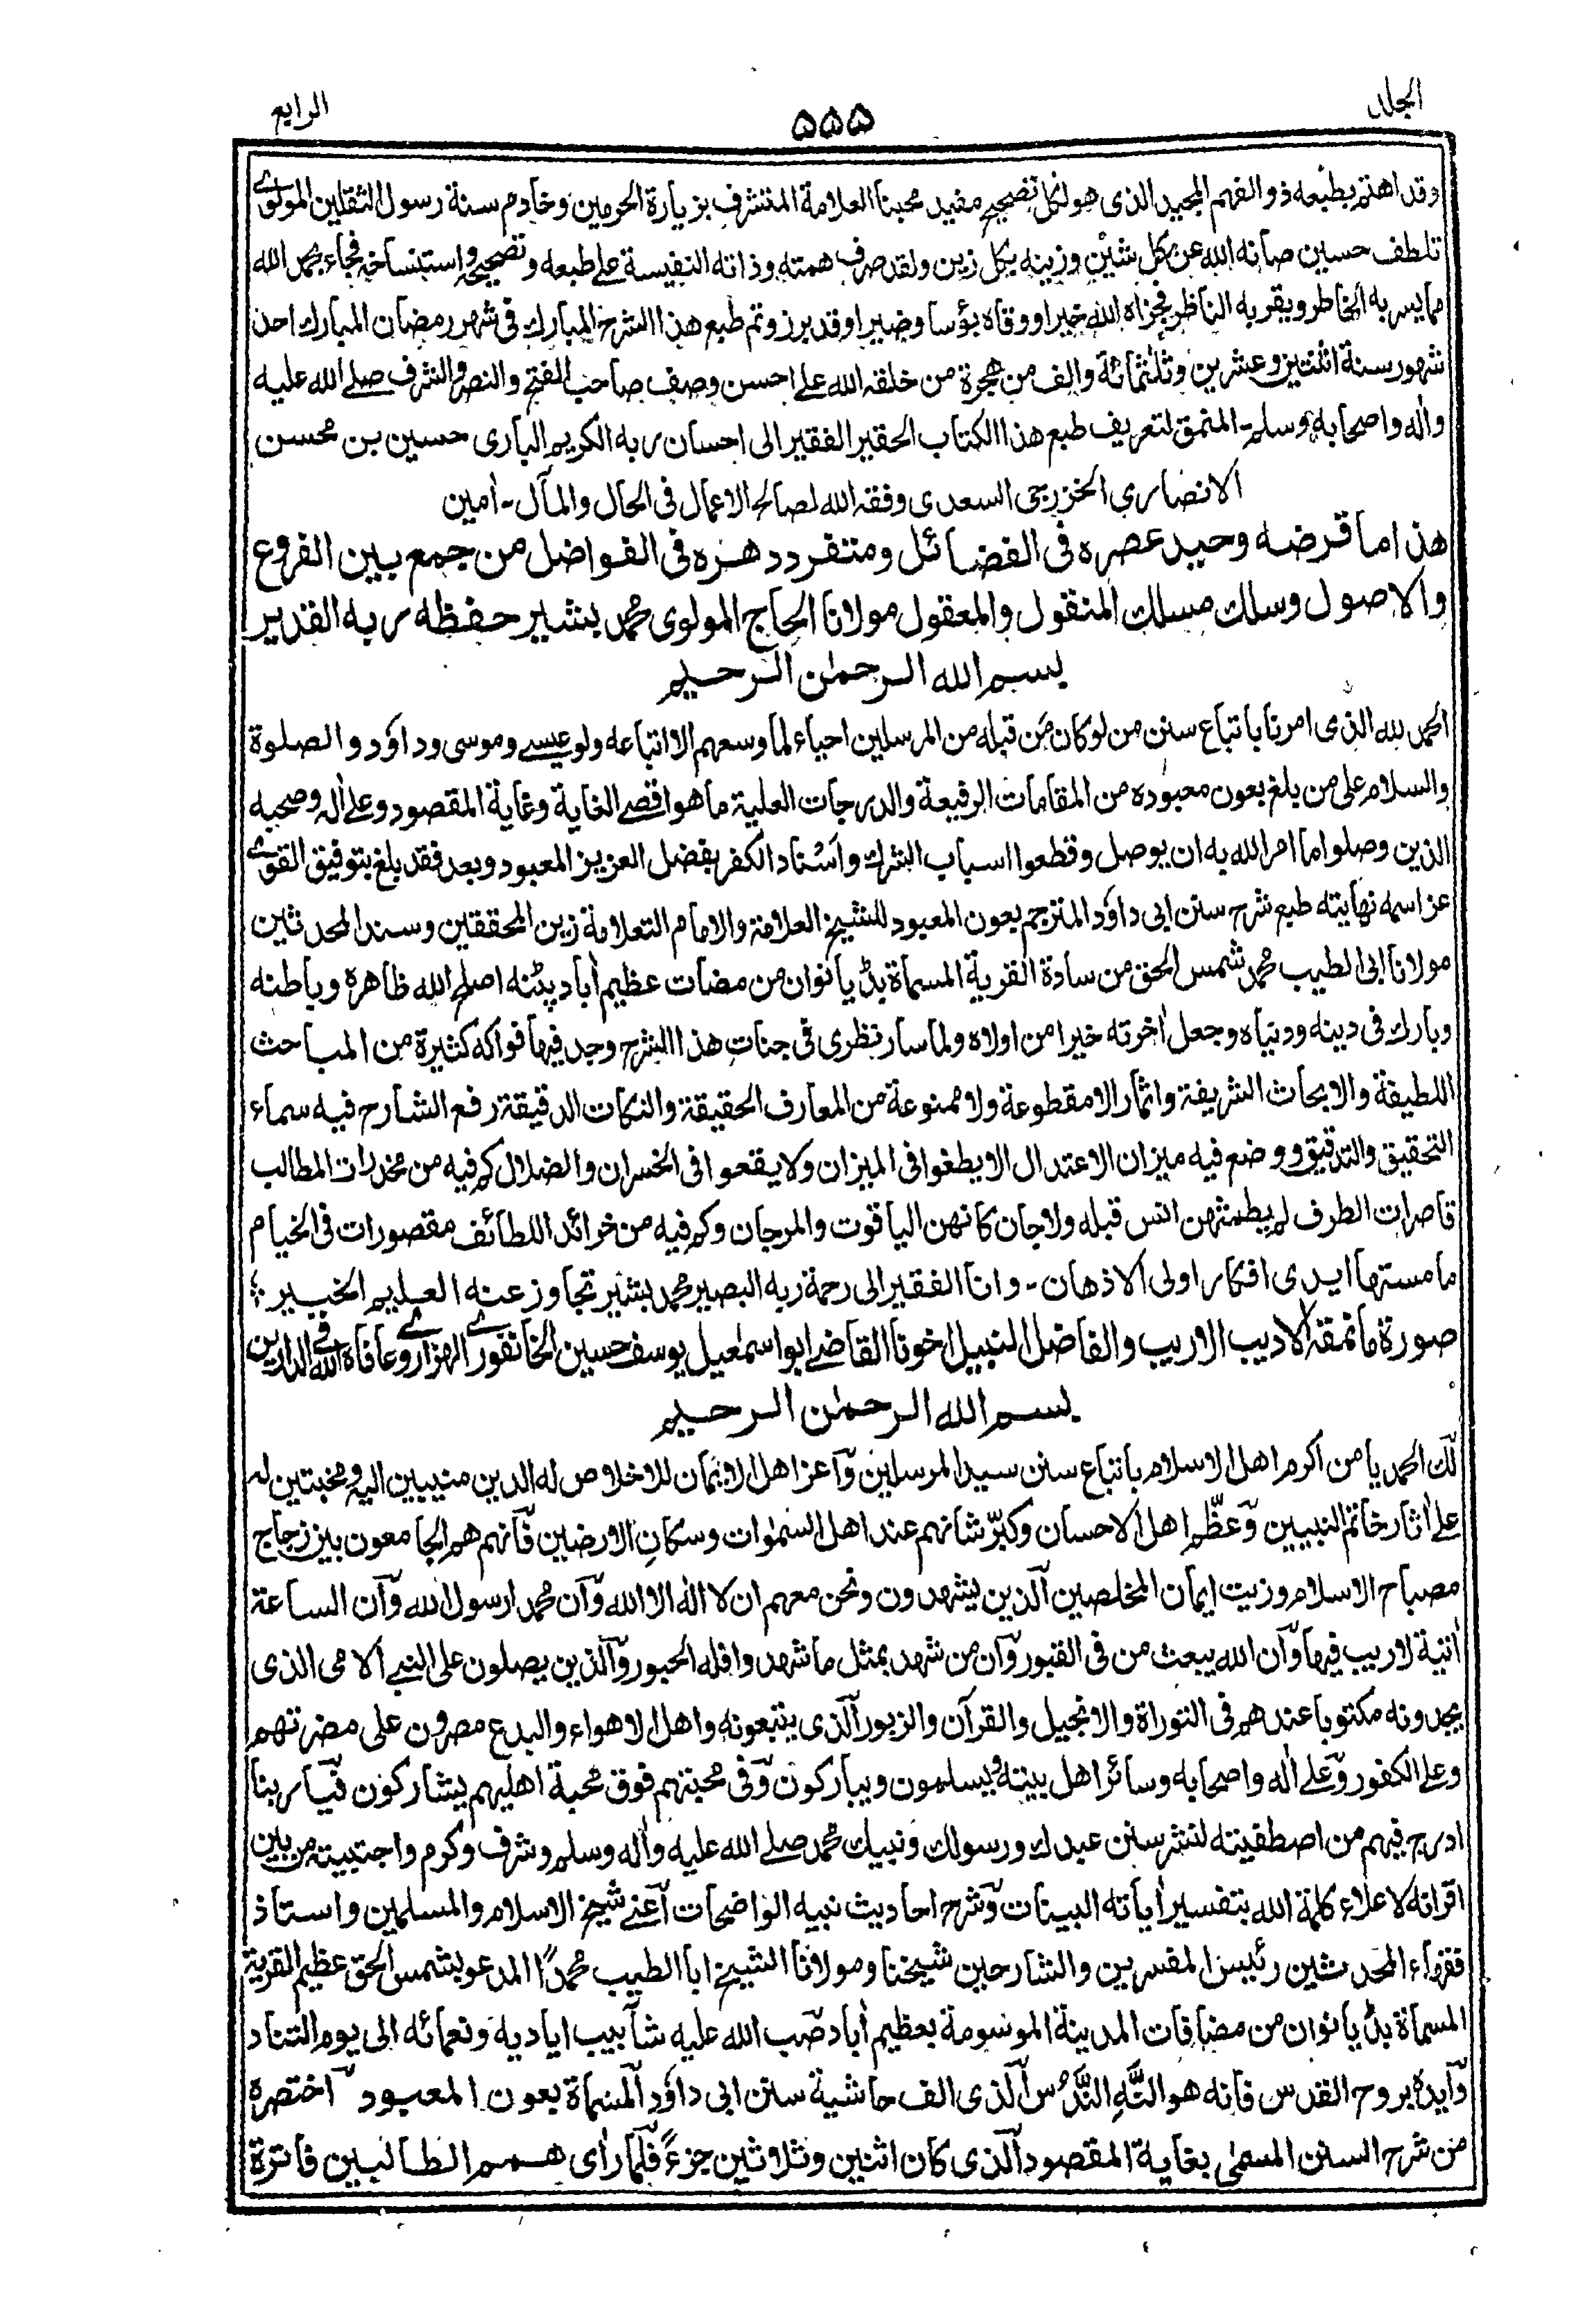 الجلد ۵۵۵ الرابع
وقد اهتم بطبعه ذو الفهم المجيد الذى هو لكل تصحيح مفيد محبنا العلامة المتشرف بزيارة الحرمين وخادم سنة رسول الثقلين المولوى
تلطف حسين صانه الله عن كل شين وزينه بكل زين ولقد صرف همته وذاته النفيسة على طبعه وتصحيحه واستنساخه فجاء بحمد الله
مما يسر به الخاطر ويقر به الناظر فجزاه الله خيرا ووقاه بؤسا وضيرا وقد برز وتم طبع هذا الشرح المبارك فى شهر رمضان المبارك احد
شهور سنة اثنتين وعشرين وثلثمائة والف من هجرة من خلقه الله على احسن وصف صاحب الفتح والنصر والشرف صلى الله عليه
واٰله واصحابه وسلم۔ المنمق لتعريف طبع هذا الكتاب الحقير الفقير الى احسان ربه الكريم البارى حسين بن محسن
الانصارى الخزرجى السعدى وفقه الله لصالح الاعمال فى الحال والمآل۔ اٰمين
هذا ما قرضه وحيد عصره فى الفضائل ومتفرد دهره فى الفواضل من جمع بين الفروع
والاصول وسلك مسلك المنقول والمعقول مولانا الحاج المولوى محمد بشير حفظه ربه القدير
بسم الله الرحمٰن الرحيم
الحمد لله الذى امرنا باتباع سنن من لو كان من قبله من المرسلين احياء لما وسعهم الا اتباعه ولو عيسى وموسى وداؤد والصلوة
والسلام على من بلغ بعون معبوده من المقامات الرفيعة والدرجات العلية ما هو اقصى الغاية وغاية المقصود وعلى اٰله وصحبه
الذين وصلوا ما امر الله به ان يوصل وقطعوا اسباب الشرك واسناد الكفر بفضل العزيز المعبود وبعد فقد بلغ بتوفيق القوى
عز اسمه نهايته طبع شرح سنن ابى داؤد المترجم بعون المعبود للشيخ العلامة والامام التعلامة زين المحققين وسند المحدثين
مولانا ابى الطيب محمد شمس الحق من سادة القرية المسماة بڈيانوان من مضات عظيم اٰباد پٹنه اصلح الله ظاهره وباطنه
وبارك فى دينه ودنياه وجعل اٰخرته خيرا من اولاه ولما سار نظرى فى جنات هذا الشرح وجد فيها فواكه كثيرة من المباحث
اللطيفة والابحاث الشريفة واثمار لا مقطوعة ولا ممنوعة من المعارف الحقيقة والنكات الدقيقة رفع الشارح فيه سماء
التحقيق والتدقيق ووضع فيه ميزان الاعتدال الا يطغوا فى الميزان ولا يقعوا فى الخسران والضلال كم فيه من مخدرات المطالب
قاصرات الطرف لم يطمثهن انس قبله ولا جان كانهن الياقوت والمرجان وكم فيه من خرائد اللطائف مقصورات فى الخيام
ما مستها ايدى افكار اولى الاذهان۔ وانا الفقير الى رحمة ربه البصير محمد بشير تجاوز عنه العليم الخبير
صورة ما نمقه الاديب الاريب والفاضل النبيل اخونا القاضى ابو اسمٰعيل يوسف حسين الخانفورى الهزاروى عافاه الله فى الدارين
بسم الله الرحمٰن الرحيم
لك الحمد يا من اكرم اهل الاسلام باتباع سنن سيد المرسلين واعز اهل الايمان للاخلاص له الدين منيبين اليه ومخبتين له
على اٰثار خاتم النبيين وعظّم اهل الاحسان وكبّر شانهم عند اهل السمٰوات وسكان الارضين فانهم هم الجامعون بين زجاج
مصباح الاسلام وزيت ايمان المخلصين الذين يشهدون ونحن معهم ان لا اله الا الله وان محمدا رسول الله وان الساعة
اٰتية لا ريب فيها وان الله يبعث من فى القبور وان من شهد بمثل ما شهدوا فله الحبور والذين يصلون على النبى الامى الذى
يجدونه مكتوبا عندهم فى التوراة والانجيل والقرآن والزبور الذى يتبعونه واهل الاهواء والبدع مصرون على مضرتهم
وعلى الكفور وعلى اٰله واصحابه وسائر اهل بيته يسلمون ويباركون وفى محبتهم فوق محبة اهليهم يشاركون فيا ربنا
ادرج فيهم من اصطفيته لنشر سنن عبدك ورسولك ونبيك محمد صلى الله عليه واٰله وسلم وشرف وكرم واجتبيته من بين
اقرانه لاعلاء كلمة الله بتفسير اٰياته البينات وشرح احاديث نبيه الواضحات اعنى شيخ الاسلام والمسلمين واستاذ
فقهاء المحدثين رئيس المفسرين والشارحين شيخنا ومولانا الشيخ ابا الطيب محمدًا المدعو بشمس الحق عظيم القرية
المسماة بڈيانوان من مضافات المدينة الموسومة بعظيم اٰباد صب الله عليه شآبيب اياديه ونعمائه الى يوم التناد
وايده بروح القدس فانه هو النَّدُس الذى الف حاشية سنن ابى داؤد المسماة بعون المعبود اختصره
من شرح السنن المسمى بغاية المقصود الذى كان اثنين وثلاثين جزءً فلما رأى همم الطالبين فاترة